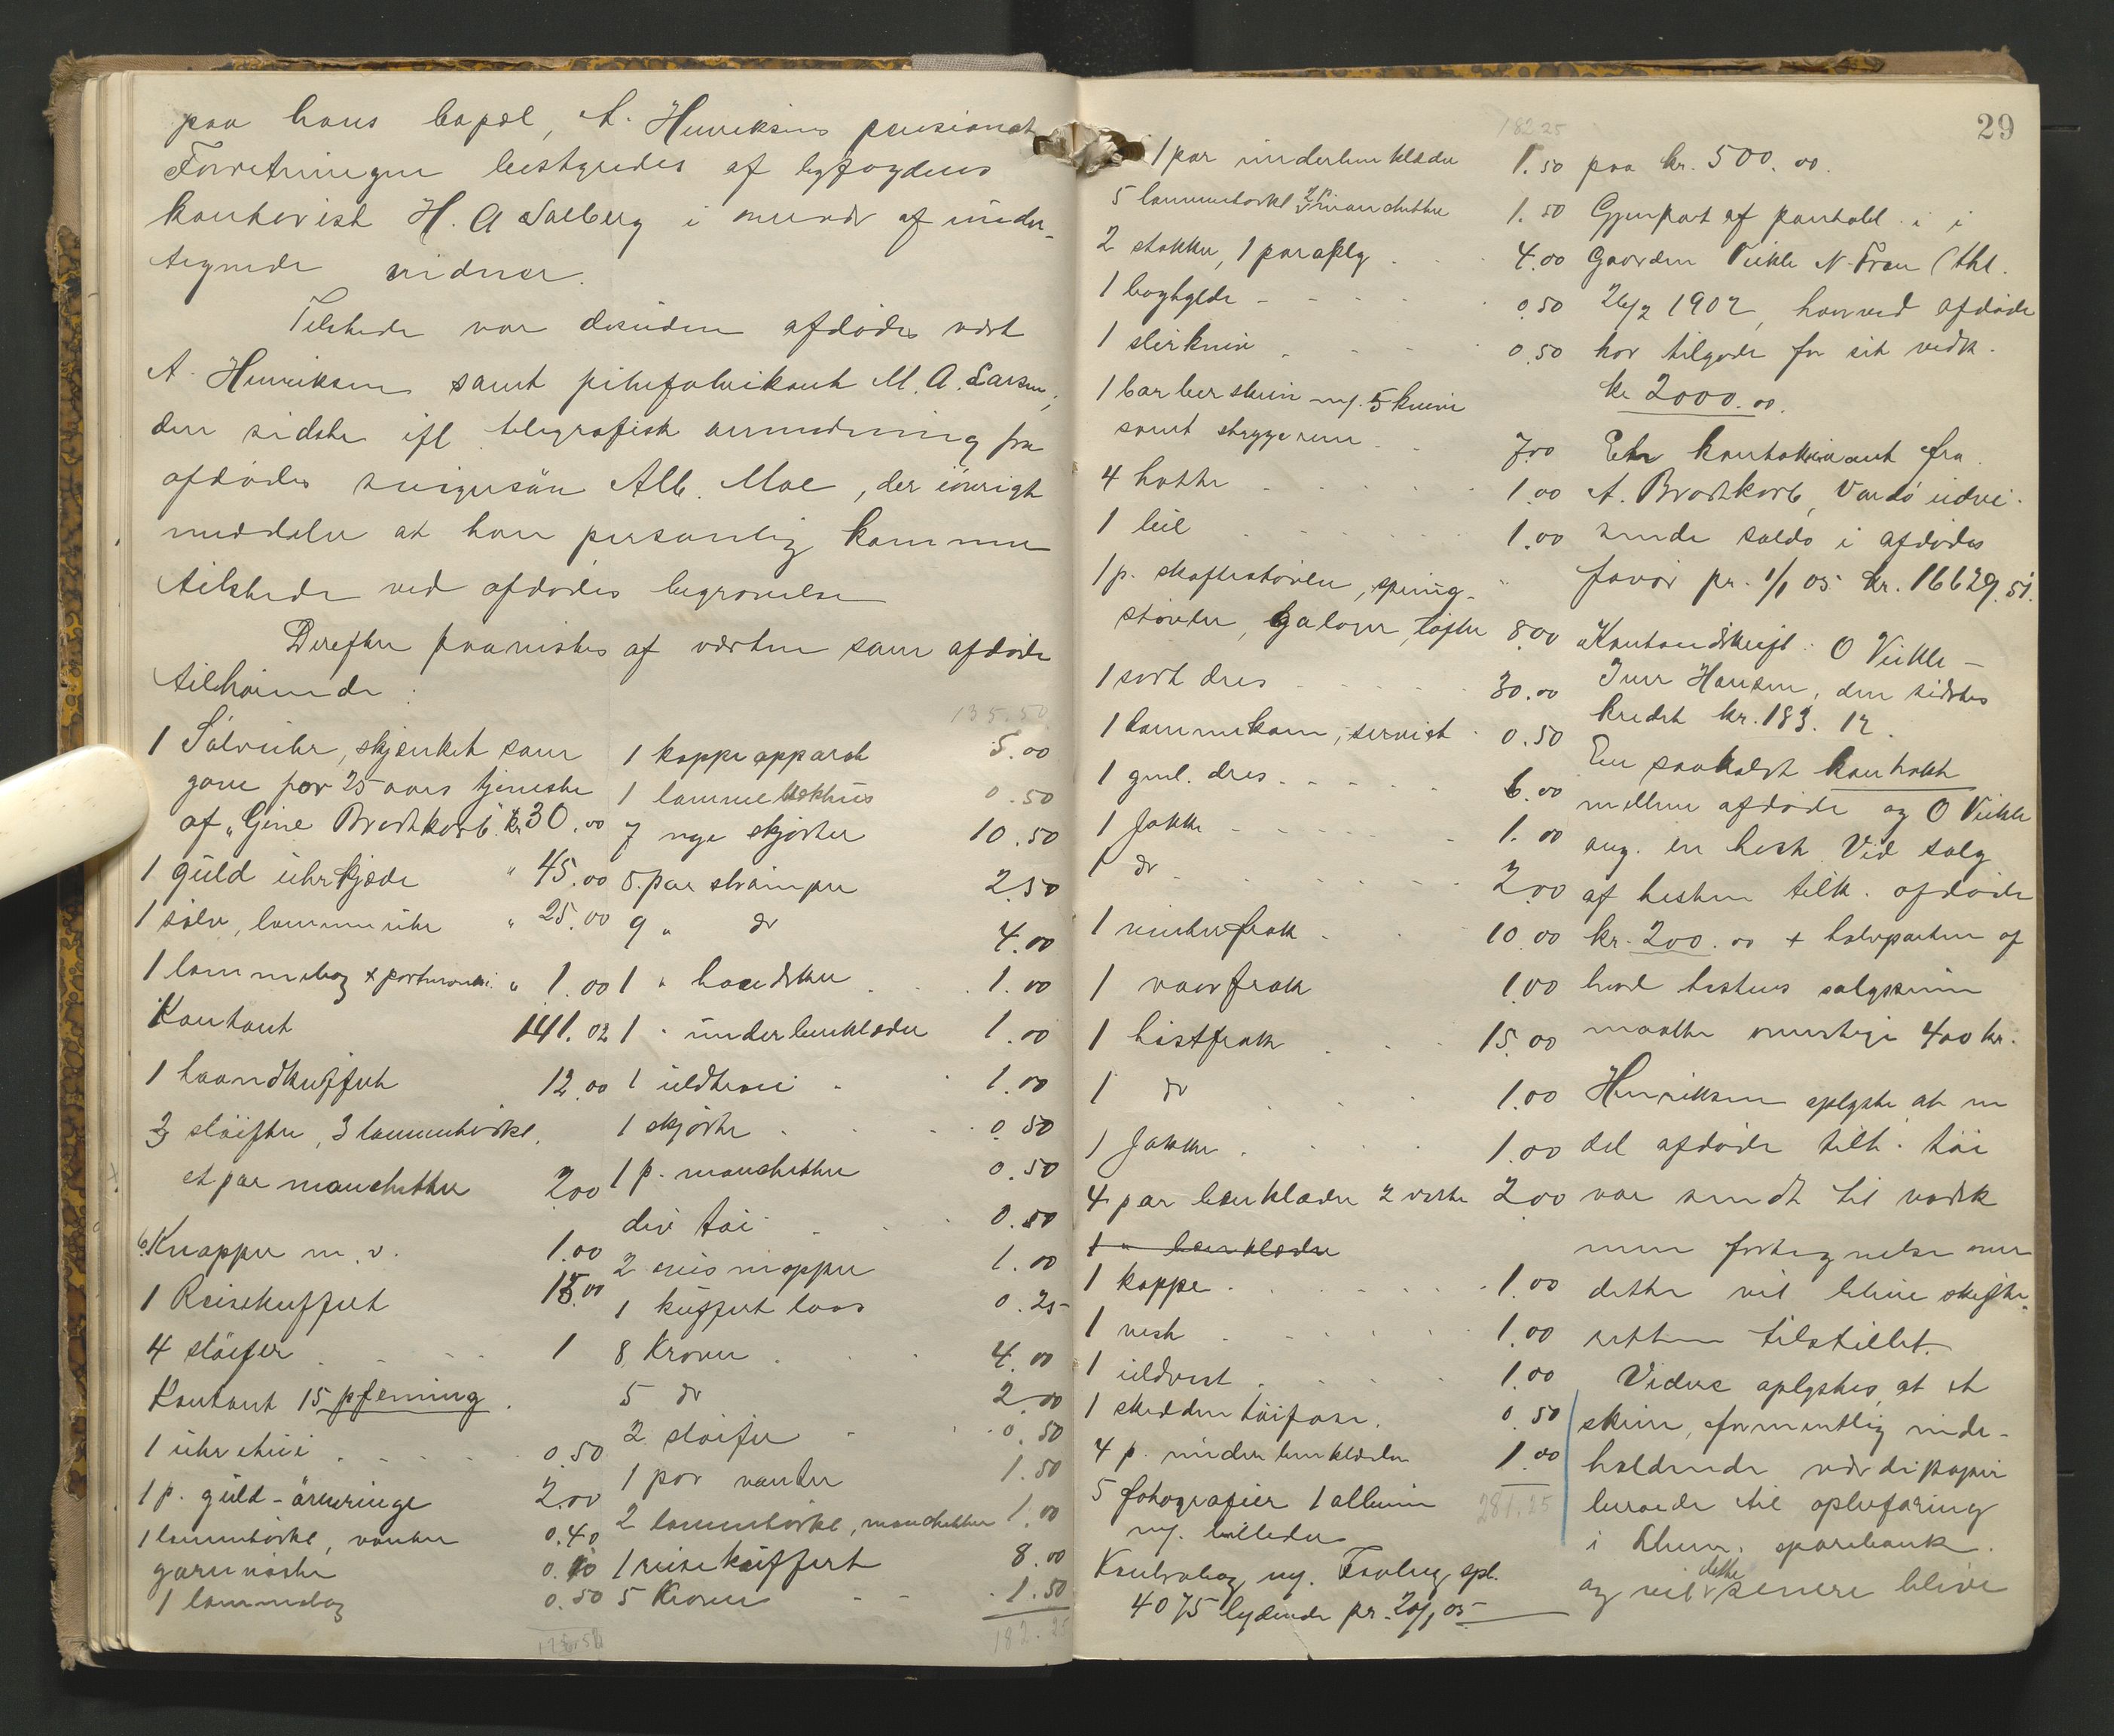 paa hans bopæl, A. Henriksens pensionat
Forretningen bestyredes af byfogdens
kontorist H. A Salberg i nærvær af under-
tegnede vidner.
Tilstede var desuden afdødes vært
A. Henriksen samt pibefabrikant M. A. Larsen,
den sidste ifl telegrafisk anmodning fra
afdødes svigersøn Alb. Moe, der iøvrigt
meddeler at han personlig kommer
tilstede ved afdødes begravelse
Derefter paavistes af verten som afdøde
tilhørende:
1 Sølvuhr, skjænket som
gave for 25 aars tjeneste
af „Gine Brodtkorb". kr 30.00
1 guld uhrkjæde " 45.00
1 sølv, lommeuhr " 25.00
1 lommebog + portemonæ. " 1.00
Kontant 141.02
1 haandkuffert 12.00
3 sløifer, 3 lommetørkl.
et par manchetter 2.00
6 Knapper m. v. 1.00
1 Reisekuffert 15.00
4 sløifer 1
Kontant 15 pfenning.
1 uhretui 0.50
1 p. guld-øreringe 2.00
1 lommetørkl, vanter 0.40
garnnøste 0.10
1 lommebog 0.50
135.50
1 kopper apparat 5.00
1 lommeblækhus 0.50
7 nye skjorter 10.50
5. par strømper 2.50
9 " do 4.00
1 " handsker 1.00
1 " underbenklæder 1.00
1 uldtrøie 1.00
1 skjorte 0.50
1 p. manchetter 0.50
div tøi 0.50
2 1.00
1 kuffert laas 0.25
8 Kraver 4.00
5 do 2.00
2 sløifer 0.50
1 par vanter 1.50
2 lommetørkl, manchetter 1.00
1 reisekuffert 8.00
5 Kraver 1.50
182.25
29
182.25
1 par underbenklæder 1.50
5 lommetørkl 2 p manchetter 1.50
2 stokker, 1 paraply 4.00
1 boghylde 0.50
1 slirkniv 0.50
1 barberskrin m/. 5 knive
samt strygerem 7.00
4 hatte 1.00
1 1.00
1 p. skaftestøvler, spring-
støvler, galoger, tøfler 8.00
1 sort dres 30.00
1 lommekam, serviet 0.50
1 gml. dres 6.00
1 Jakke 1.00
1 do 2.00
1 vinterfrak 10.00
1 vaarfrak 1.00
1 høstfrak 15.00
1 do 1.00
1 Jakke 1.00
4 par benklæder 2 veste 2.00
1 " benklæder
1 kappe 1.00
1 vest 1.00
1 uldvest 1.00
1 skidden tøipose. 0.50
4 p. underbenklæder 1.00
281.25
5 fotografier 1 album
m/. billeder
Kontrabog m/. Tromsø spb.
4075 lydende pr. 20/1 05
paa kr. 500.00.
Gjenpart af pantobl. i i
Gaarden Veikle N-Fron (thl.
26/2 1902, hvorved afdøde
har tilgode for sit vedk.
kr 2000.00.
Etr kontokurant fra
A. Brodtkorb, Vardø udvi-
sende saldo i afdødes
favør pr. 1/1 05 kr. 16629.51.
Kontanskrift: O Veikle –
Iver Hansen, den sidstes
kredit kr. 183. 12.
En saakaldt kontrakt
mellem afdøde og O Veikle
ang. en hest. Ved salg
af hesten tilk. afdøde
kr. 200.00 + halvparten af
hvad hestens salgssum
maatte overstige 400 kr.
Henriksen oplyste at en
del afdøde tilh. tøi
var sendt til vadsk
men fortegnelse over
dette vil blive skifte-
retten tilstillet.
Videre oplystes, at et
skrin, formentlig inde-
holdende værdipapir
beroede til opbevaring
i Lhmr. sparebank.
og vil dette senere blive